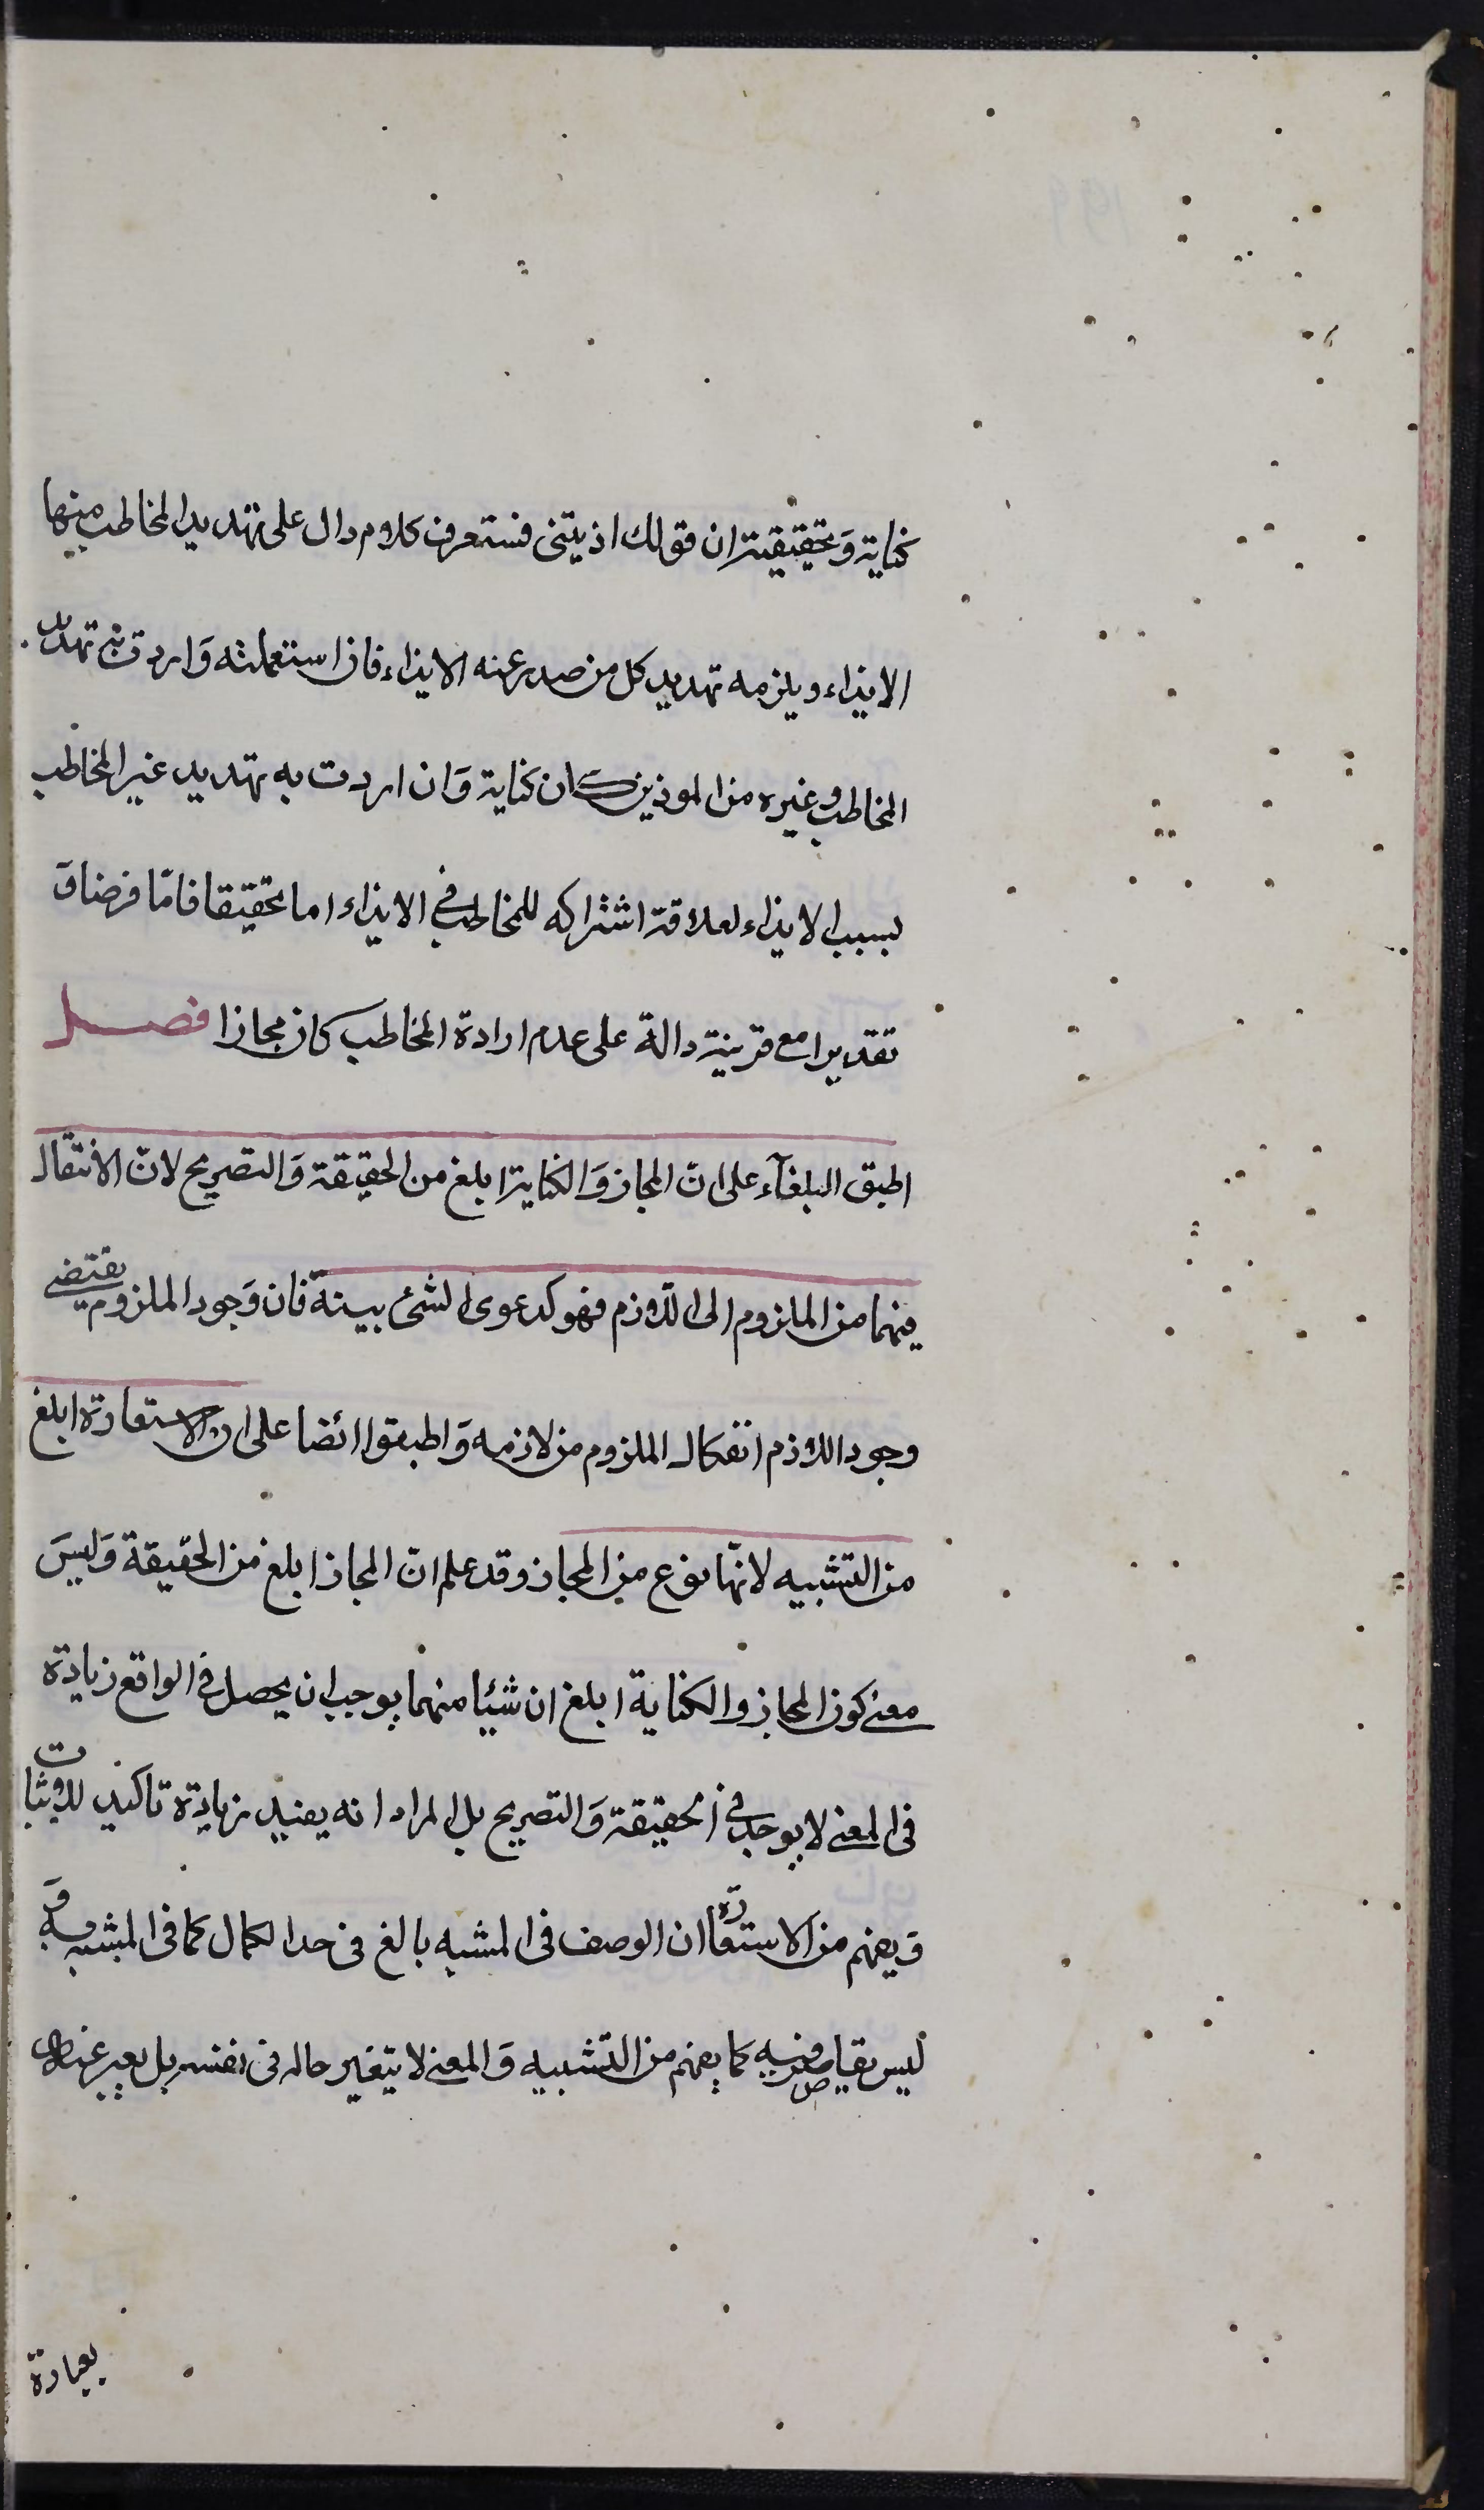 كناية وَتحقيقيته ان قولك اذيتنى فستعرف كلام دال على تهديد المخاطب منها
الايذاء ويلزمه تهديد كل من صدر عنه الايذاء فان استعملته وَاردت به تهديد
المخاطب وغيره من الموذين كان كناية وَان اردت به تهديد غير المخاطب
بسبب الايذاء لعلاقة اشتراكه للمخاطب فى الايذاء اما تحقيقا فامّا فرضا وَ
تقديرا مع قرينة دالة على عدم ارادة المخاطب كان مجازا فصل
اطبق البلغآء على انّ المجاز وَالكناية ابلغ من الحقيقة وَالتصريح لانّ الانتقال
فيهما من الملزوم الى اللّازم فهو كدعوى الشئ ببينة فان وَجود الملزوم يقتضى
وجود اللازم انفكاك الملزوم من لازمه وَاطبقوا ائضا على ان الاستعارة ابلغ
من التشبيه لانّها نوع من المجاز وقد علم انّ المجاز ابلغ من الحقيقة وَليسَ
معنى كون المجاز والكناية ابلغ ان شيئا منهما يوجب ان يحصل فى الواقع زيادة
فى المعنى لا يوجد فى الحقيقة وَالتصريح بل المراد انه يفيد زيادة تاكيد للاثبات
وَ يفهم من الاستعارة ان الوصف فى المشبه بالغ فى حد الكمال كما فى المشبه به وَ
ليس بقاصر فيه كما يفهم من التشبيه وَالمعنى لا يتغير حاله فى نفسه بل يعبر عنه
بعبارة